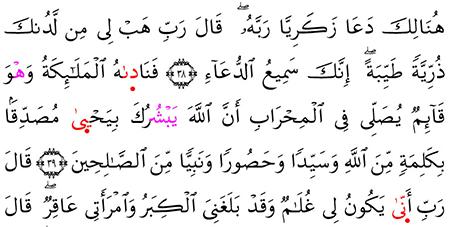 هُنَالِكَ دَعَا زَكَرِيَّا رَبَّهُۥ ۖ قَالَ رَبِّ هَبْ لِى مِن لَّدُنكَ
ذُرِّيَّةً طَيِّبَةً ۖ إِنَّكَ سَمِيعُ الدُّعَآءِ ﴿٣٨﴾ فَنَادىٰهُ الْمَلَٰٓئِكَةُ وَهْوَ
قَآئِمٌ يُصَلِّى فِى الْمِحْرَابِ أَنَّ اللَّهَ يَبْشُرُكَ بِيَحْيىٰ مُصَدِّقًۢا
بِكَلِمَةٍ مِّنَ اللَّهِ وَسَيِّدًا وَحَصُورًا وَنَبِيًّا مِّنَ الصَّٰلِحِينَ ﴿٣٩﴾ قَالَ
رَبِّ أَنّىٰ يَكُونُ لِى غُلَٰمٌ وَقَدْ بَلَغَنِىَ الْكِبَرُ وَامْرَأَتِى عَاقِرٌ ۖ قَالَ